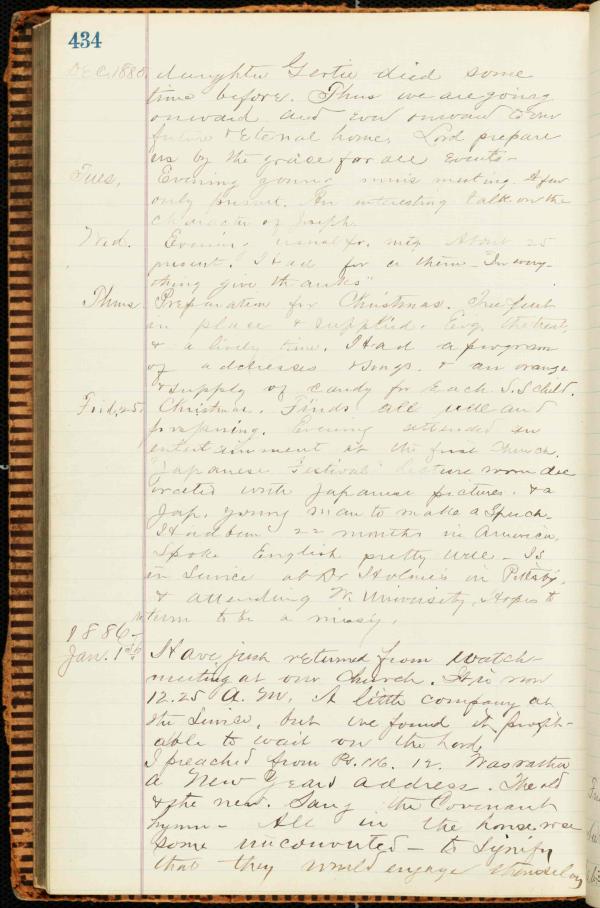 434
DEC. 1885. daughter Gertie died some
time before. Thus we are going
onward and ever onward to our
future & Eternal home. Lord prepare
us by the grace for all events—
Tues. Evening young men's meeting. A few
only present. An interesting talk on the
character of Joseph.
Wed. Evening usual pr. mtg. About 25
present. Had for a theme — "In every-
thing give thanks"
Thurs. Preparation for Christmas. Tree put
in place & supplied. Evg. the treat,
& a lively time. Had a program
of addresses & songs. & an orange
& supply of candy for each S.S. child.
Frid. 25. Christmas. Finds all well and
prospering. Evening attended an
entertainment at the first Church.
"Japanese Festival" Lecture room dec
orated with Japanese pictures. & a
Jap. young man to make a Speech.
Had been 22 months in America.
Spoke English pretty well — Is
in Service at Dr Holmes in Pittsbg.
& attending W. University. Hopes to
return to be a missy.
1886—
Jan. 1st Have just returned from watch-
meeting at our Church. It is now
12.25 A.M. A little company at
the Service, but we found it profit-
able to wait on the Lord.
I preached from Ps. 116. 12. Was rather
a New Years address. The old
& the new. Sang the Covenant
hymn — All in the house rose
some unconverted — to signify
that they would engage themselves